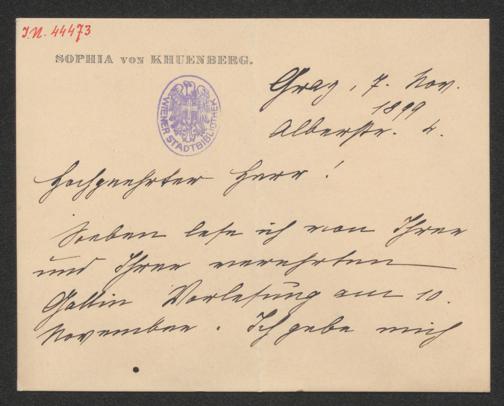 I.N. 44473
SOPHIA VON KHUENBERG.
WIENER STADTBIBLIOTHEK
Graz, 7. Nov.
1899
Alberstr. 4.
Hochgeehrter Herr!
Soeben lese ich von Ihrer
und Ihrer verehrten
Gattin Vorlesung am 10.
November. Ich gebe mich